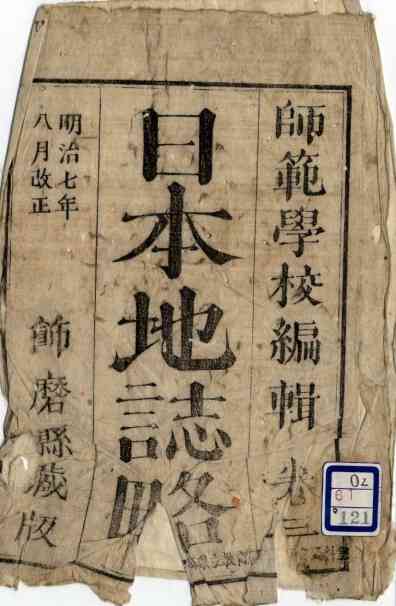 師範學校編輯 卷三
日本地誌略
明治七年
八月改正
飾磨縣蔵版
Oz
61
121